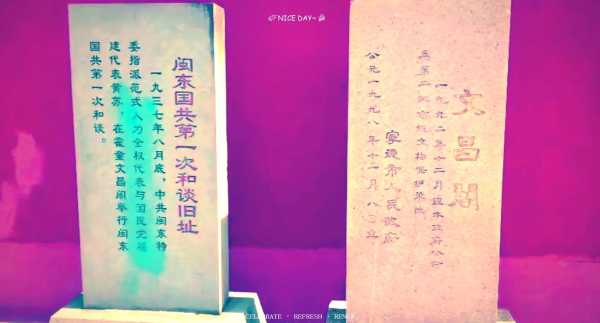 NICE DAY~
闽东国共第一次和谈旧址
一九三七年八月底，中共闽东特
委指派范式人为全权代表与国民党福
建代表黄苏，在霍童文昌阁举行闽东
国共第一次和谈。
文昌阁
一九九二年十二月经本政府公布
宁德市人民政府
公元一九九八年十二月八日立
CELEBRATE · REFRESH · RENEW